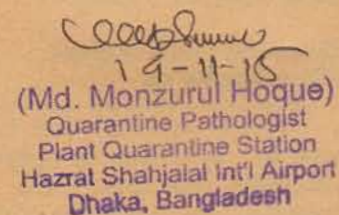 19-11-15
(Md. Monzurul Hoque)
Quarantine Pathologist
Plant Quarantine Station
Hazrat Shahjalal Int'l Airport
Dhaka, Bangladesh